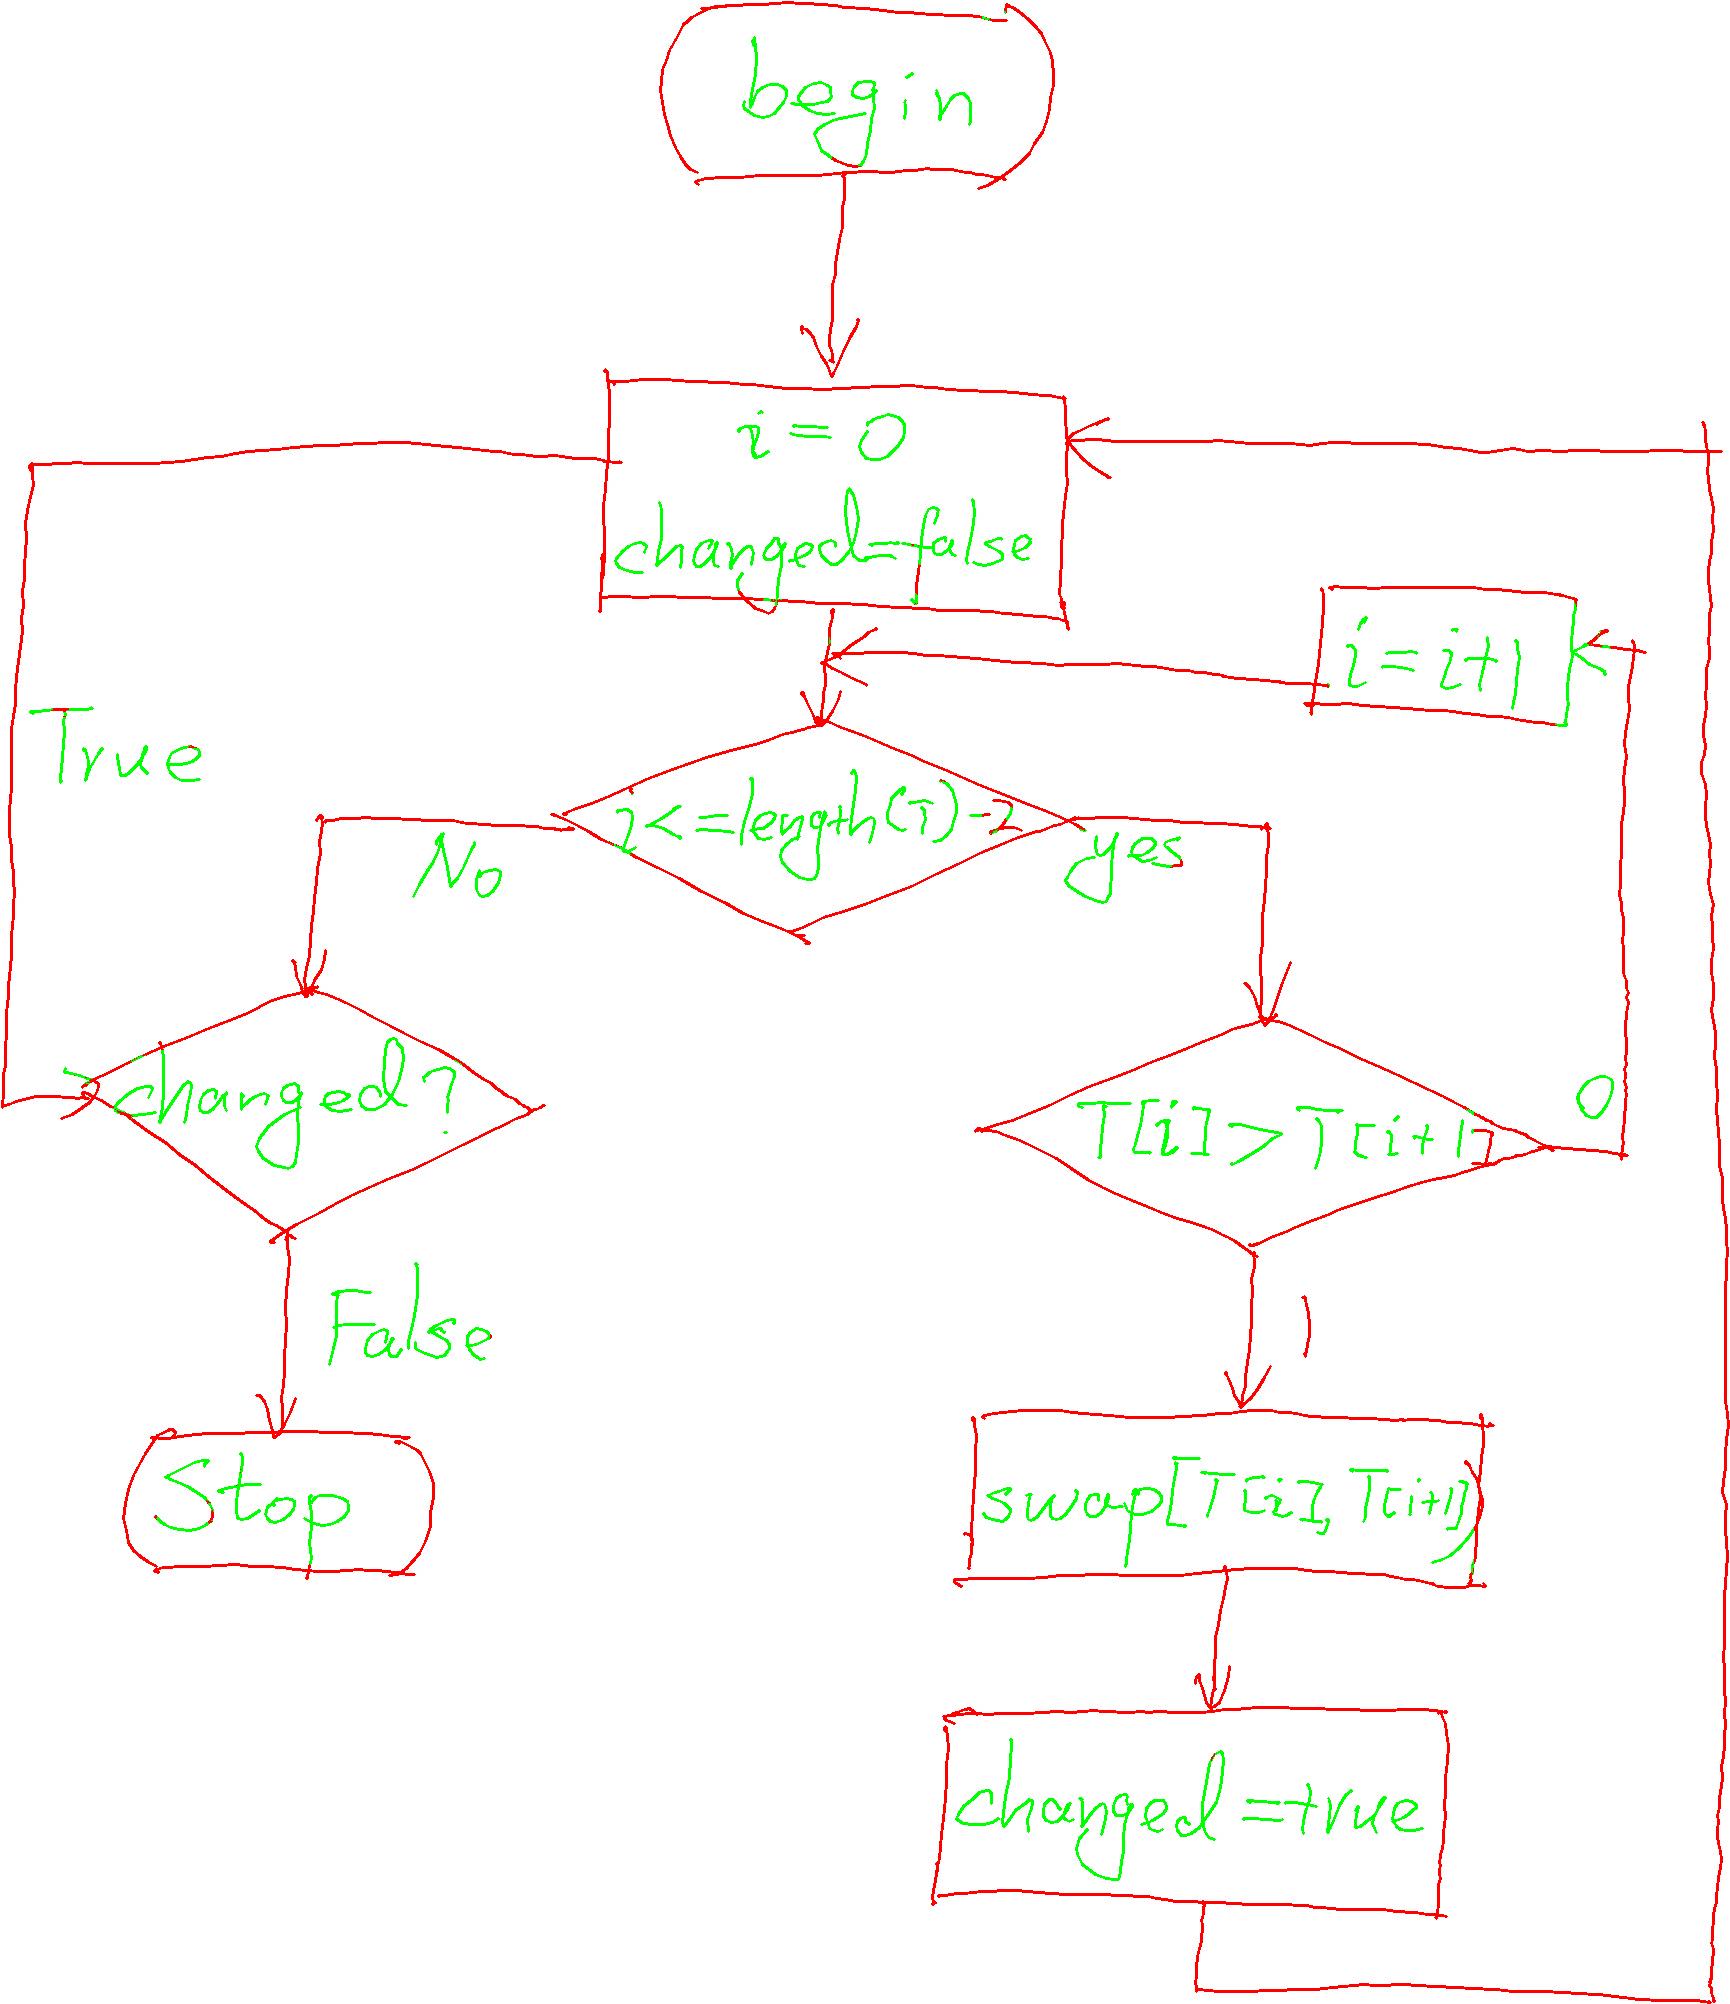 begin
i=0
changed=false
i=i+1
True
i<=length(T)-2
No
yes
changed?
T[i]>T[i+1]
0
False
1
Stop
swap[T[i],T[i+1])
changed=true